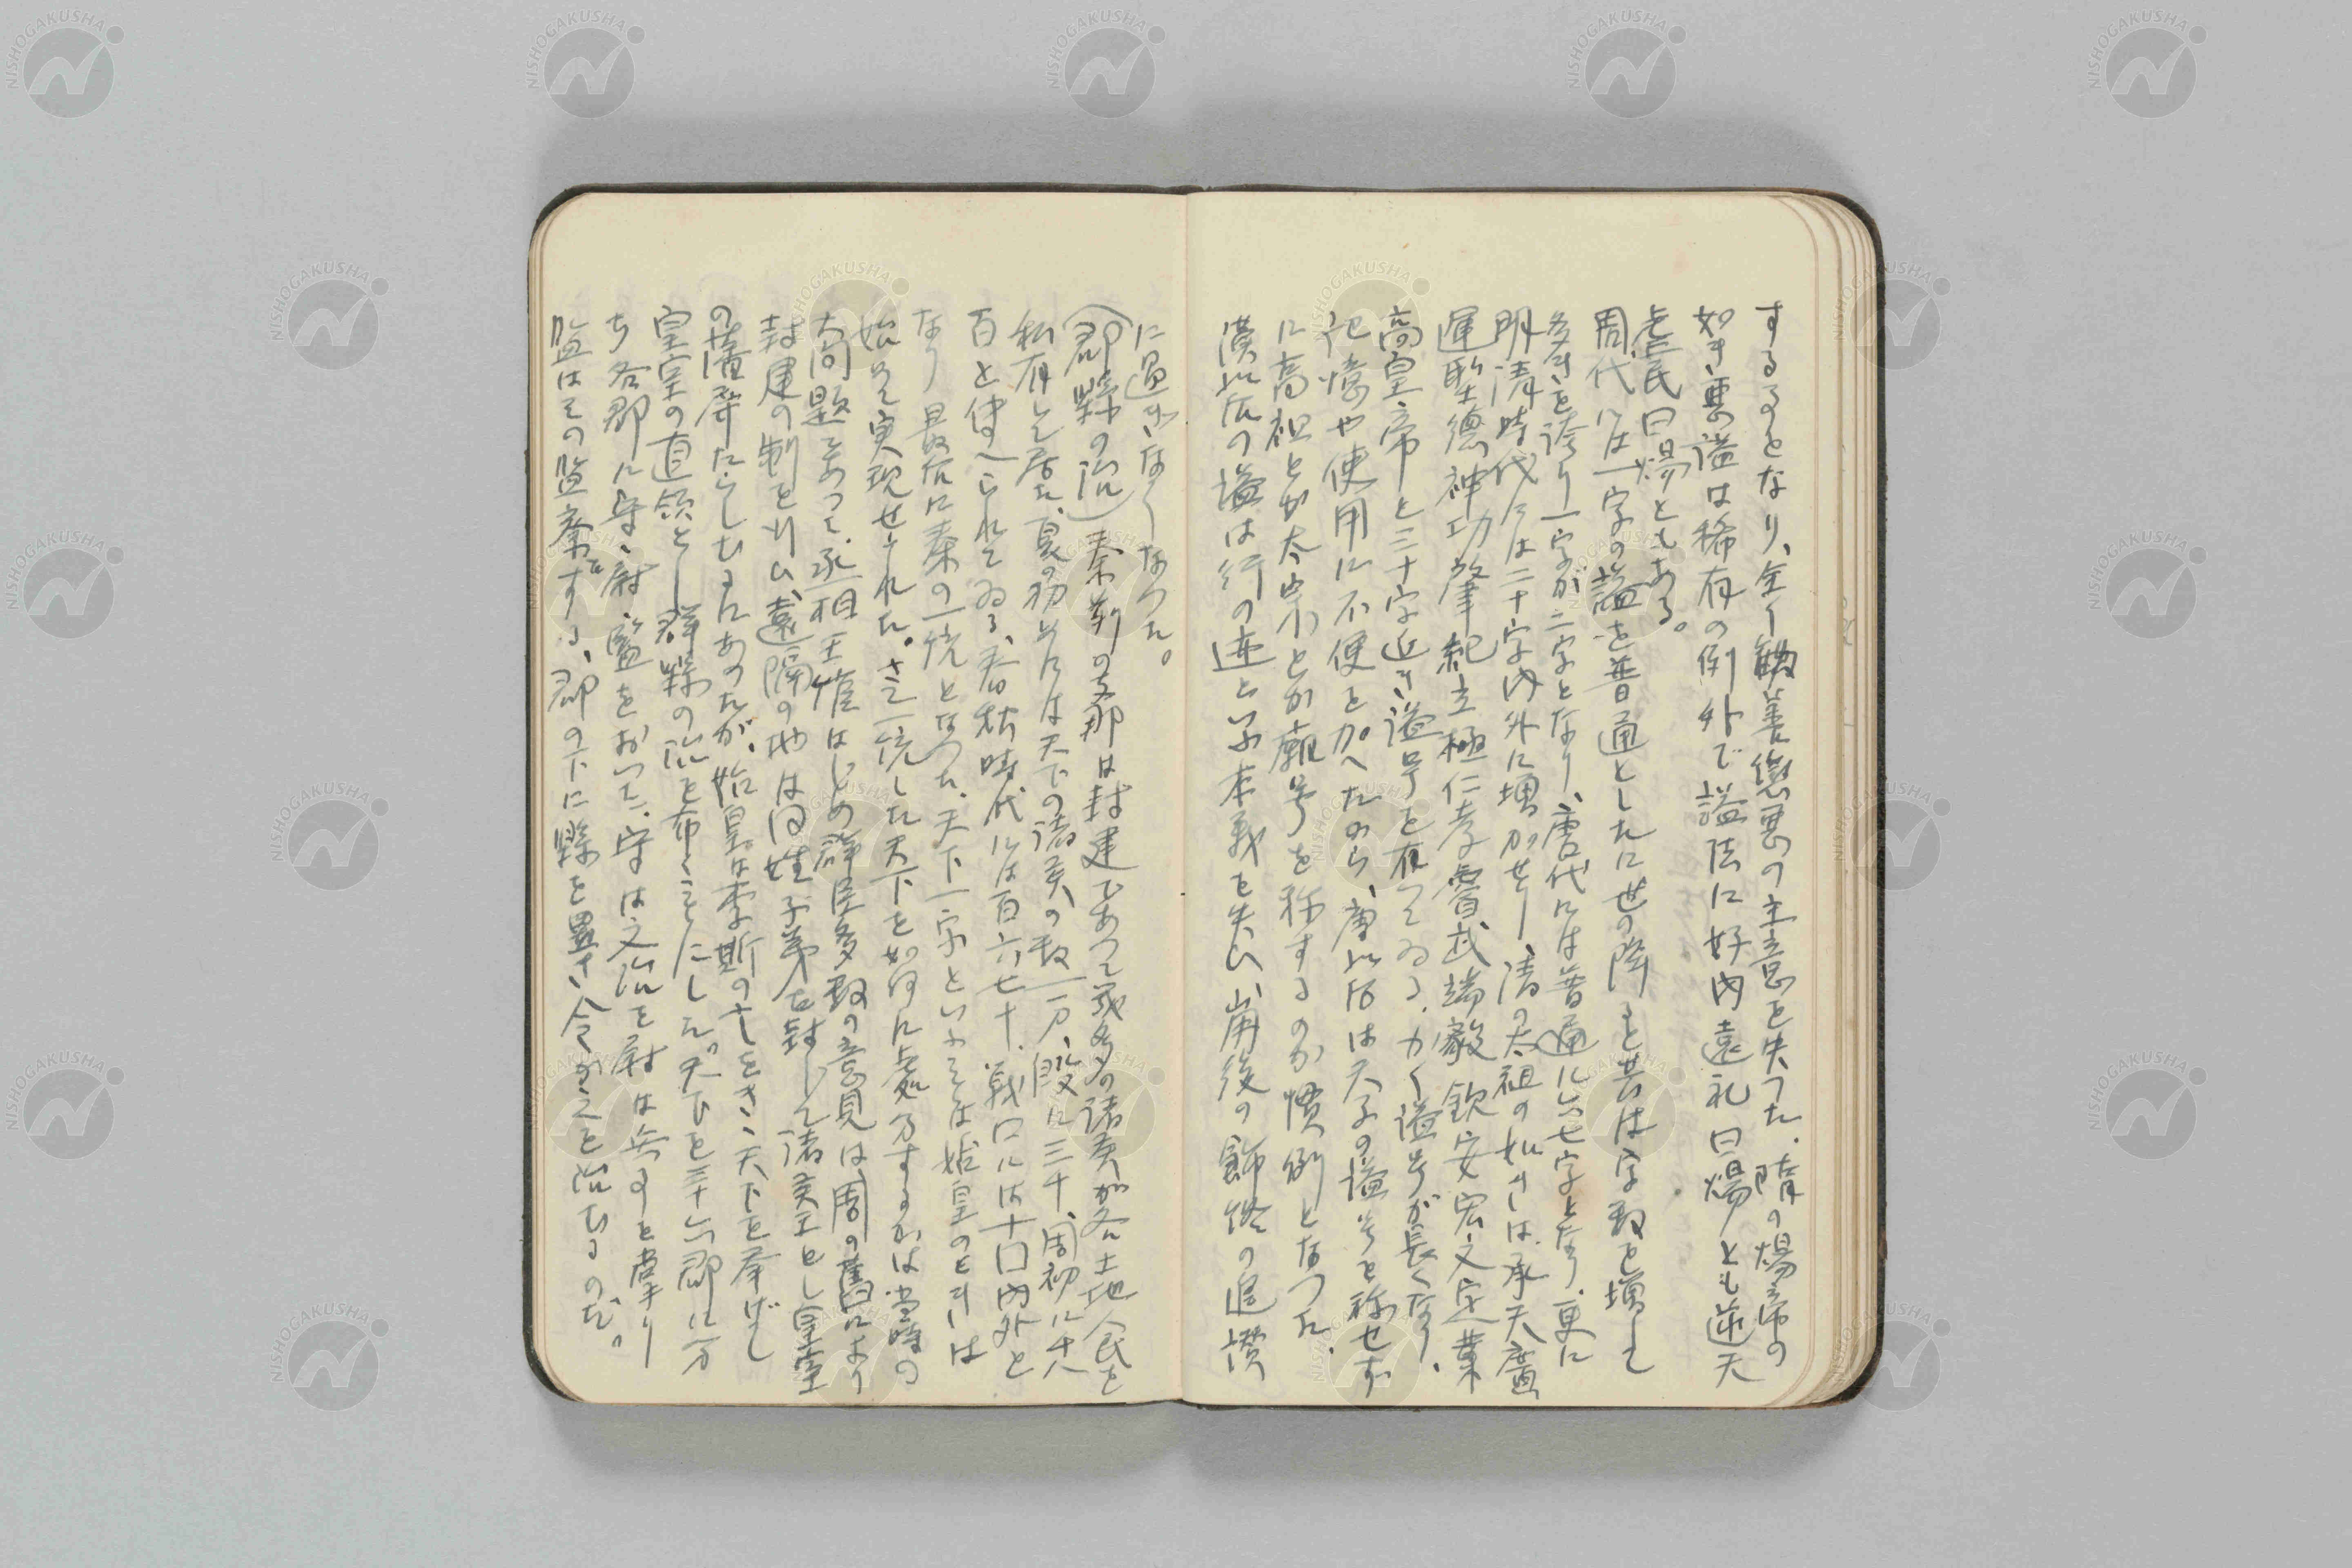 するのとなり、全く勧善懲悪の主意を失つた。隋の煬帝の
如き悪諡は稀有の例外で諡法に好内遠礼曰煬とも逆天
虐民曰煬ともある。
周代には一字の諡を普通としたに世の降ると共は字数を増して
多きを誇り一字が二字となり、唐代には普通に六七字となり、更に
明清時代には二十字内外に増加せり 清の太祖の如きは、承天廣
運聖德神功肇紀立極仁孝睿武端毅欽安宏文定業
高皇帝と三十字近き諡号を有つてゐる、かく諡号が長くなり、
記憶や使用に不便とかへたから、唐以后は天子の諡号を称せず
に高祖とか太宗とか廟号を称するのが慣例となつた。
漢以后の諡は行の迹と云ふ本義を失ひ、崩後の飾終の追讃
に過ぎなくなつた。
(郡縣の治) 秦朝の支那は封建であつて幾多の諸矦が各土地人民を
私有して居た、夏の初めには天下の諸矦の数一万、殷に三千、周初に千八
百と伝へられてゐる、春秋時代には百六七十、戦口には十口内外と
なり最后に秦の一統となつた、天下一家といふことは始皇のときは
始めて実現せられた。さて一統した天下を如何に處分するかは当時の
大問題であつて、丞相王綰はじめ群臣多数の意見は、周の舊により
封建の制を以ひ、遠隔の地は同姓子弟を封して諸矦王とし皇室
の藩屏たらしむるにあつたが、始皇は李斯の言をきゝ天下を挙げて
皇室の直領とし郡縣の治を布くことにした。天下を三十六郡に分
ち各郡に守、尉、監をおいて、守は文治を尉は兵事を掌り
監はその監察をする、郡の下に縣を置き、令が之を治むるのだ。
NISHOGAKUSHA